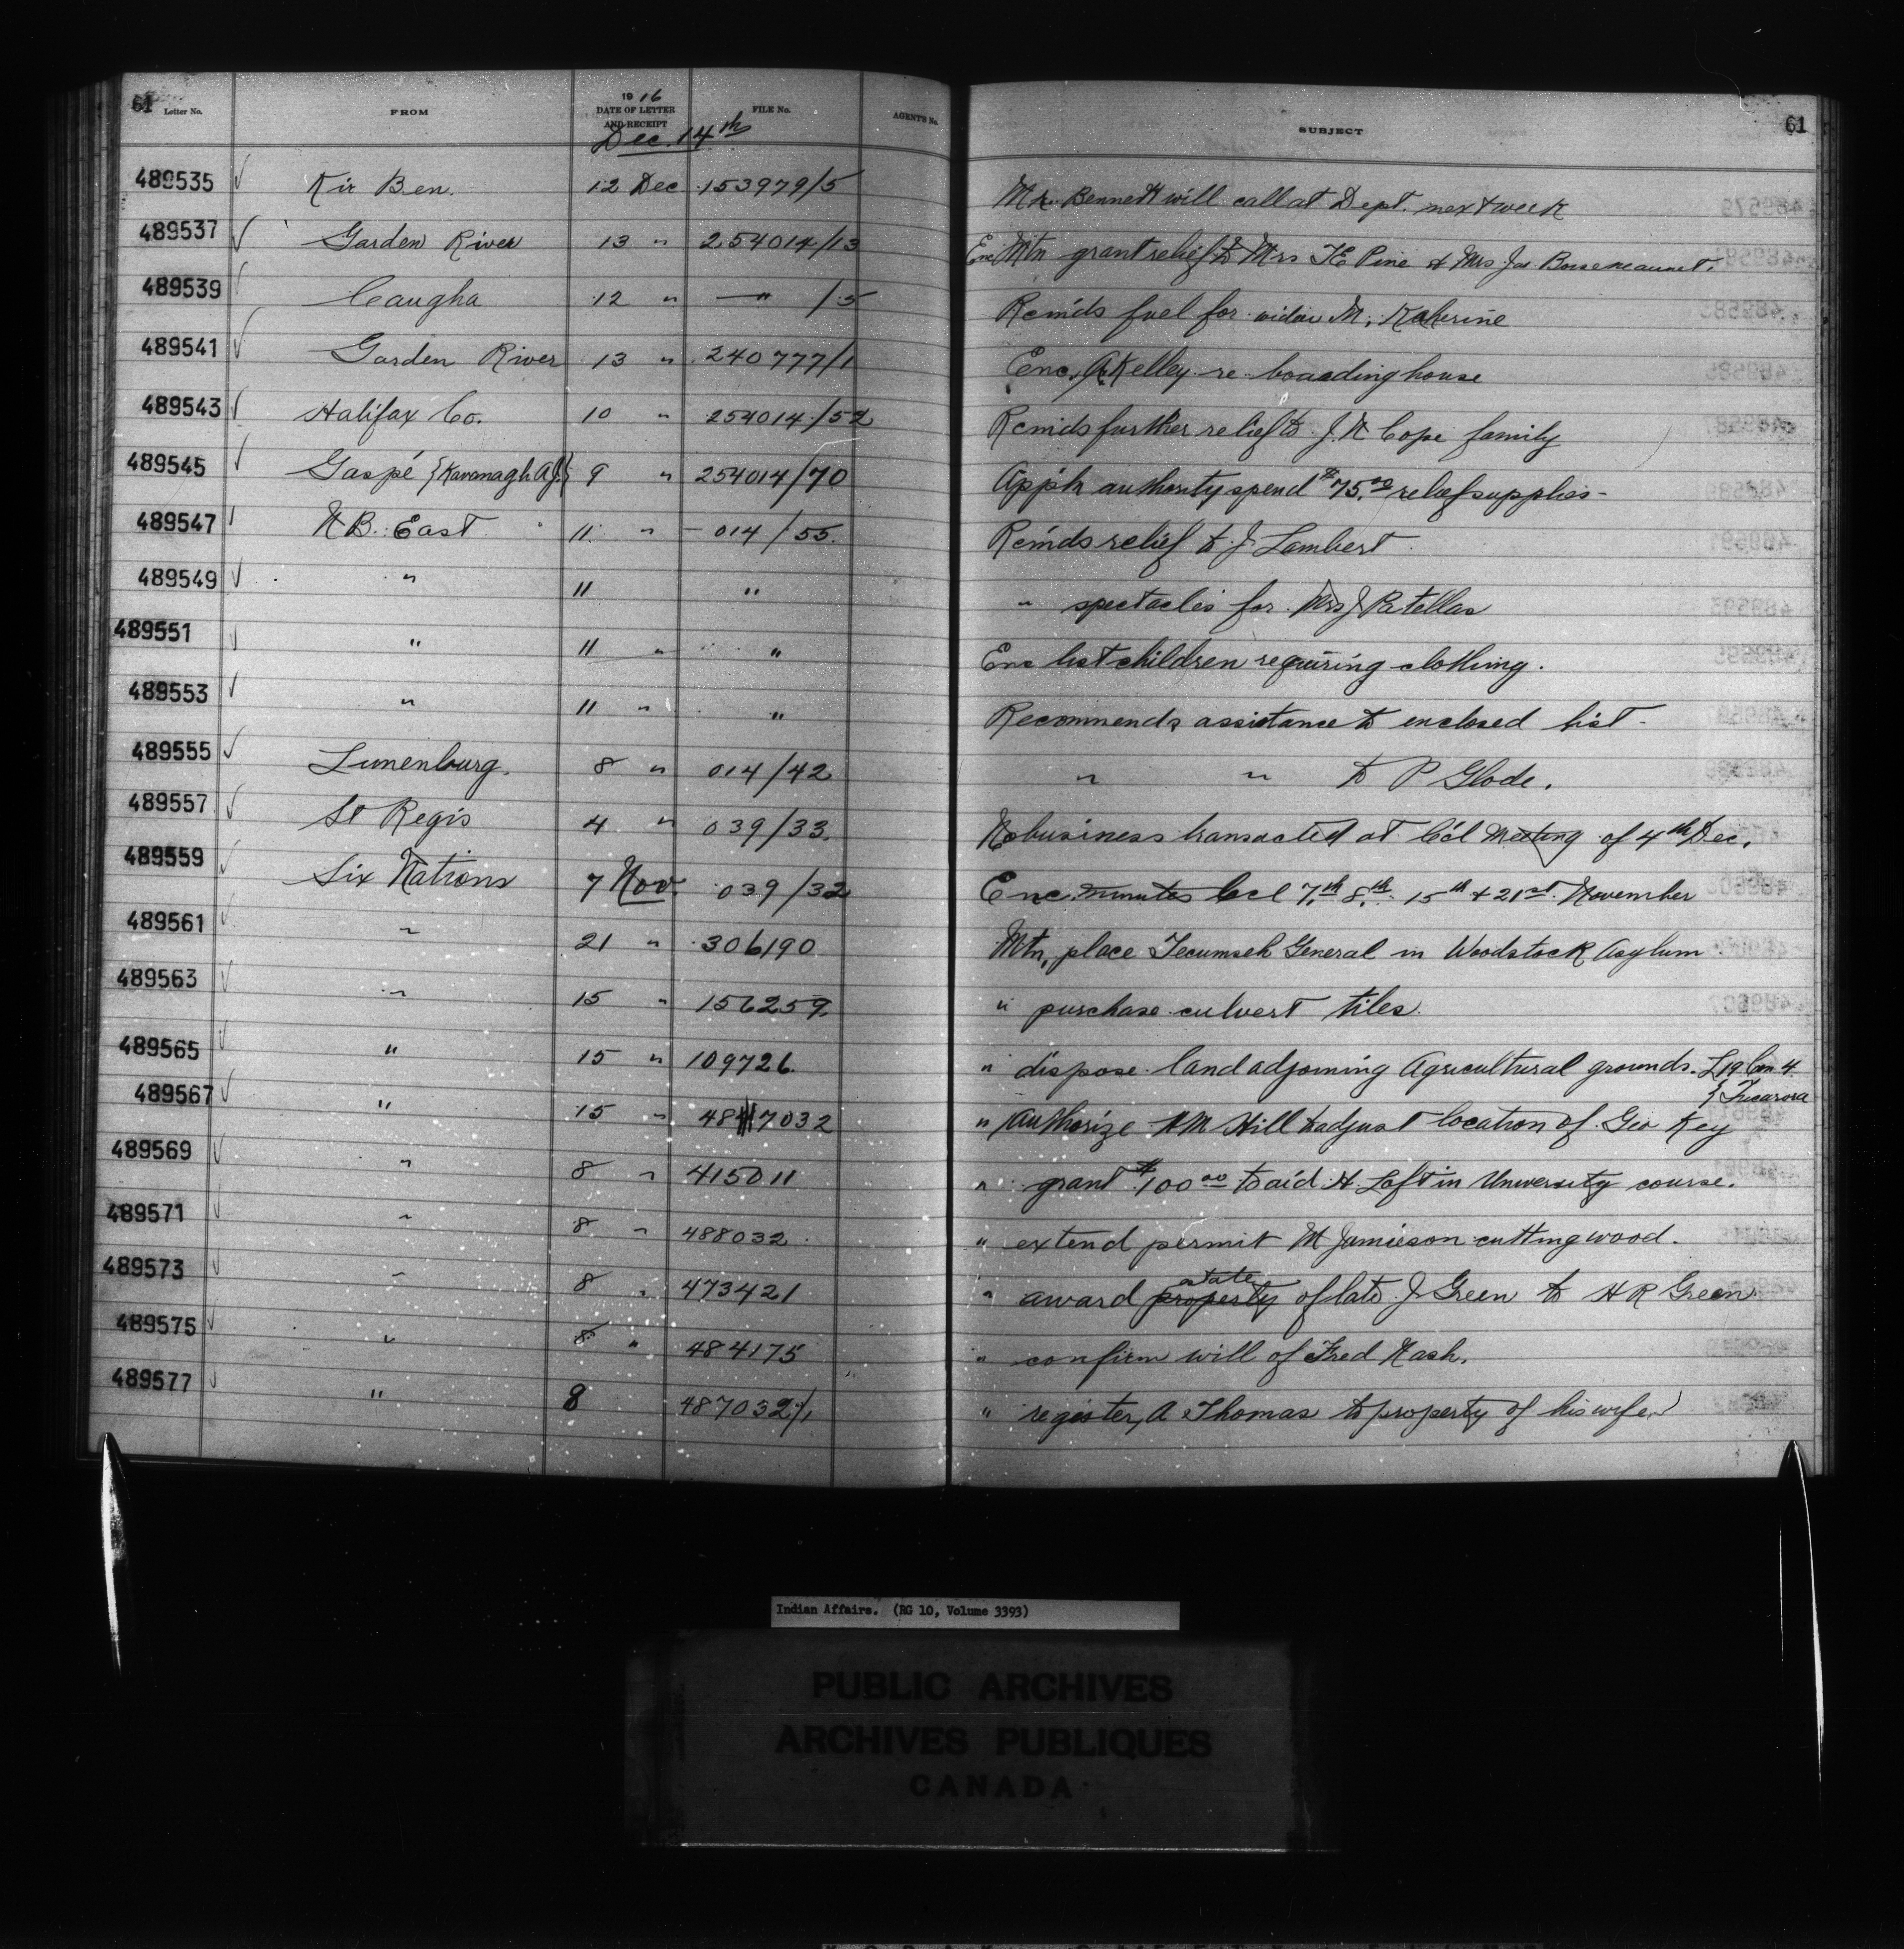 61 Letter No. FROM 1916 DATE OF LETTER AND RECEIPT FILE No. AGENT'S No. SUBJECT 61
Dec. 14th
489535 Kir Ben. 12 Dec 153979/5 Mr. Bennett will call at Dept. next week
489537 Garden River 13 " 254014/13 Enc Mtn grant relief to Mrs Pine & Mrs Jas.
489539 Caugha 12 " — " /5 Rcmds fuel for widow M. Katherine
489541 Garden River 13 " 240777/1 Enc. A Kelley re boarding house
489543 Halifax Co. 10 " 254014/52 Rcmds further relief to J. N Cope family
489545 Gaspé {Kavanagh AJ} 9 " 254014/70 App'n authority spend $75.00 relief supplies -
489547 N B. East 11 " - 014/55. Rcmds relief to J. Lambert
489549 " 11 " " spectacles for Mrs J Patellas
489551 " 11 " " Enc list children requiring clothing.
489553 " 11 " " Recommends assistance to enclosed list -
489555 Lunenburg. 8 " 014/42 " " to P Glode.
489557 St Regis 4 " 039/33. No business transacted at Cc'l meeting of 4th Dec.
489559 Six Nations 7 Nov. 039/32 Enc. minutes Ccl 7th, 8th, 15th & 21st November
489561 " 21 " 306190 Mtn, place Tecumseh General in Woodstock Asylum
489563 " 15 " 156259. " purchase culvert tiles.
489565 " 15 " 109726. " dispose land adjoining Agricultural grounds. L 19 Con 4
} Tucarora
489567 " 15 " 487032 " Authorize H M Hill to adjust location of Geo Key
489569 " 8 " 415011 " grant $100 00 to aid H. Loft in University course.
489571 " 8 " 488032 " extend permit M Jamieson cutting wood.
489573 " 8 " 473421 " award property estate of late J. Green to H R Green
489575 " 8 " 484175 " confirm will of Fred Nash.
489577 " 8 487032/1 " register, A Thomas to property of his wife.
Indian Affairs. (RG 10, Volume 3393)
PUBLIC ARCHIVES
ARCHIVES PUBLIQUES
CANADA